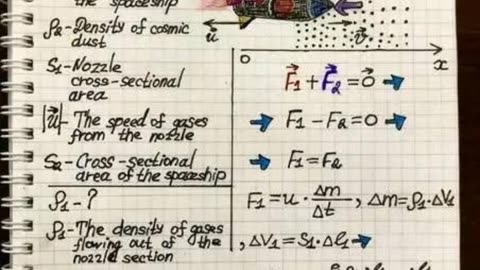 the spaceship
ρ₂-Density of cosmic
dust
S₁-Nozzle
cross-sectional
area
|u⃗|-The speed of gases
from the nozzle
S₂-Cross-sectional
area of the spaceship
ρ₁-?
ρ₁-The density of gases
flowing out of the
nozzle section
u⃗
v⃗
0 x
F⃗₁+F⃗₂=0⃗ →
→ F₁-F₂=0 →
→ F₁=F₂
F₁=u·Δm/Δt, Δm=ρ₁·ΔV₁
, ΔV₁=S₁·Δl₁→